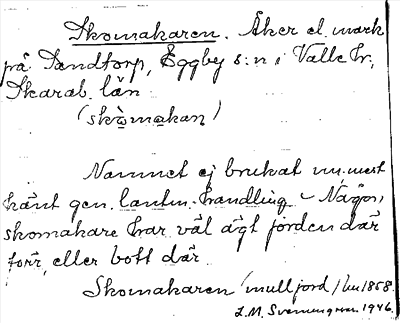 Skomakaren. Åker el. mark
på Sandtorp, Eggby s:n i Valle hr,
Skarab. län
(skòmakan)
Namnet ej brukat nu, mest
känt gen. lantm. handling – Någon
skomakare har väl ägt jorden där
förr, eller bott där.
Skomakaren mulljord / lm 1858.
L.M. Svenungsson 1946.